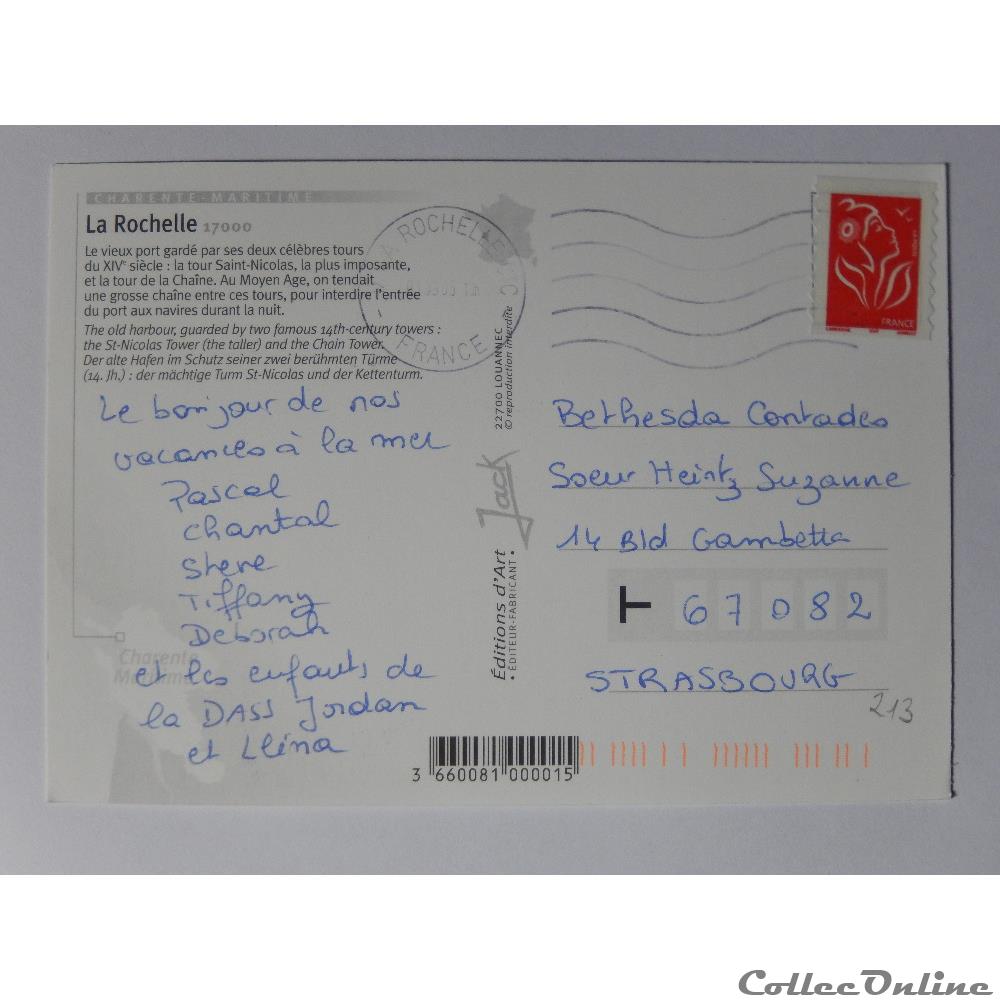 CHARENTE-MARITIME
La Rochelle 17000
Le vieux port gardé par ses deux célèbres tours
du XIVe siècle : la tour Saint-Nicolas, la plus imposante,
et la tour de la Chaîne. Au Moyen Age, on tendait
une grosse chaîne entre ces tours, pour interdire l'entrée
du port aux navires durant la nuit.
The old harbour, guarded by two famous 14th-century towers :
the St-Nicolas Tower (the taller) and the Chain Tower.
Der alte Hafen im Schutz seiner zwei berühmten Türme
(14. Jh.) : der mächtige Turm St-Nicolas und der Kettenturm.
Le bonjour de nos
vacances à la mer
Pascal
Chantal
Steve
Tiffany
Deborah
et les enfants de
la DASS Jordan
et Lléna
Charente
Maritime
Éditions d'Art
• ÉDITEUR-FABRICANT •
Jack
22700 LOUANNEC
© reproduction interdite
LA ROCHELLE
FRANCE
FRANCE
Bethesda Contades
Soeur Heintz Suzanne
14 Bld Gambetta
67082
STRASBOURG
213
3 660081 000015
CollecOnline